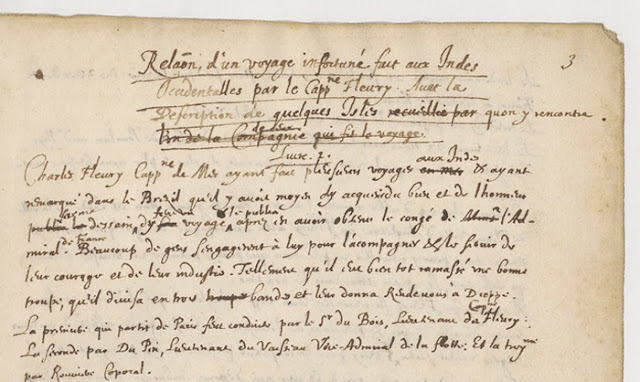 3
Relaõn, d'un voyage infortuné fait aux Indes
Occidentalles par le Capp^ne Fleury. Avec la
Description de quelques Isles recueillie par qu'on y rencontre
l'un de la Compagnie de ceux qui fit le voyage.
Livre. 1.
Charles Fleury Capp^ne de Mer ayant fait plusieurs voyages en mer aux Indes & ayant
remarqué dans le Bresil qu'il y avoit moyen d'y acquerir du bien et de l'honneur
dessein d'y voyage, & le publia apres en avoir obtenu le congé de l'Ad-
miral de France. Beaucoup de gens s'engagerent à luy pour l'accompagner &
leur courage et de leur industrie. Tellement qu'il eut bien tost ramassé une bonne
troupe, qu'il divisa en trois troupes bandes, et leur donna Rendevous à Dieppe.
La premiere qui partit de Paris feut conduite par le S^r du Bois, Lieutenant de Fleury:
La seconde par Du Pin, Lieutenant du Vaisseau Vice-Admiral de la flotte; Et la troy^me
par Caporal.